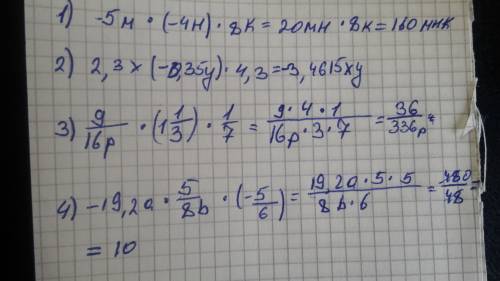 1) -5м · (-4н) · 8к = 20мн · 8к = 160мнк
2) 2,3x · (-0,35y) · 4,3 = -3,4615xy
3) 9/16p · (1 1/3) · 1/7 = 9·4·1/16p·3·7 = 36/336p
4) -19,2a · 5/8b · (-5/6) = 19,2a·5·5/8b·6 = 480/48 =
= 10